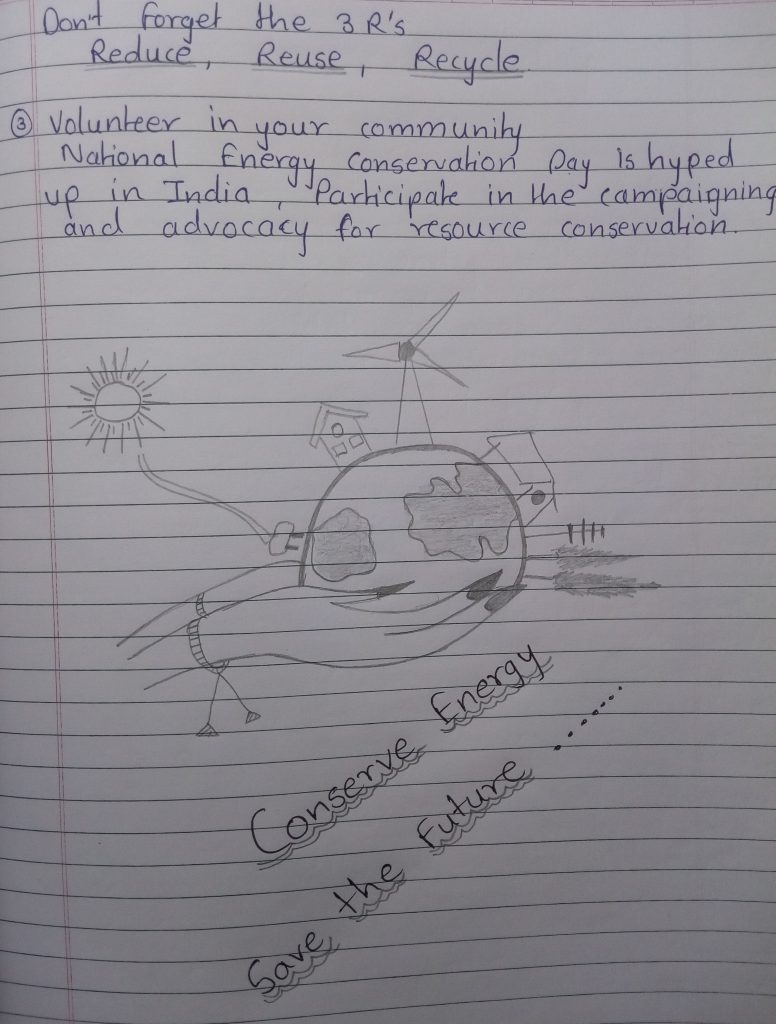 Don't forget the 3 R's
Reduce, Reuse, Recycle
③ Volunteer in your community
National Energy Conservation Day is hyped
up in India, Participate in the campaigning
and advocacy for resource conservation.
Conserve Energy
Save the Future .......